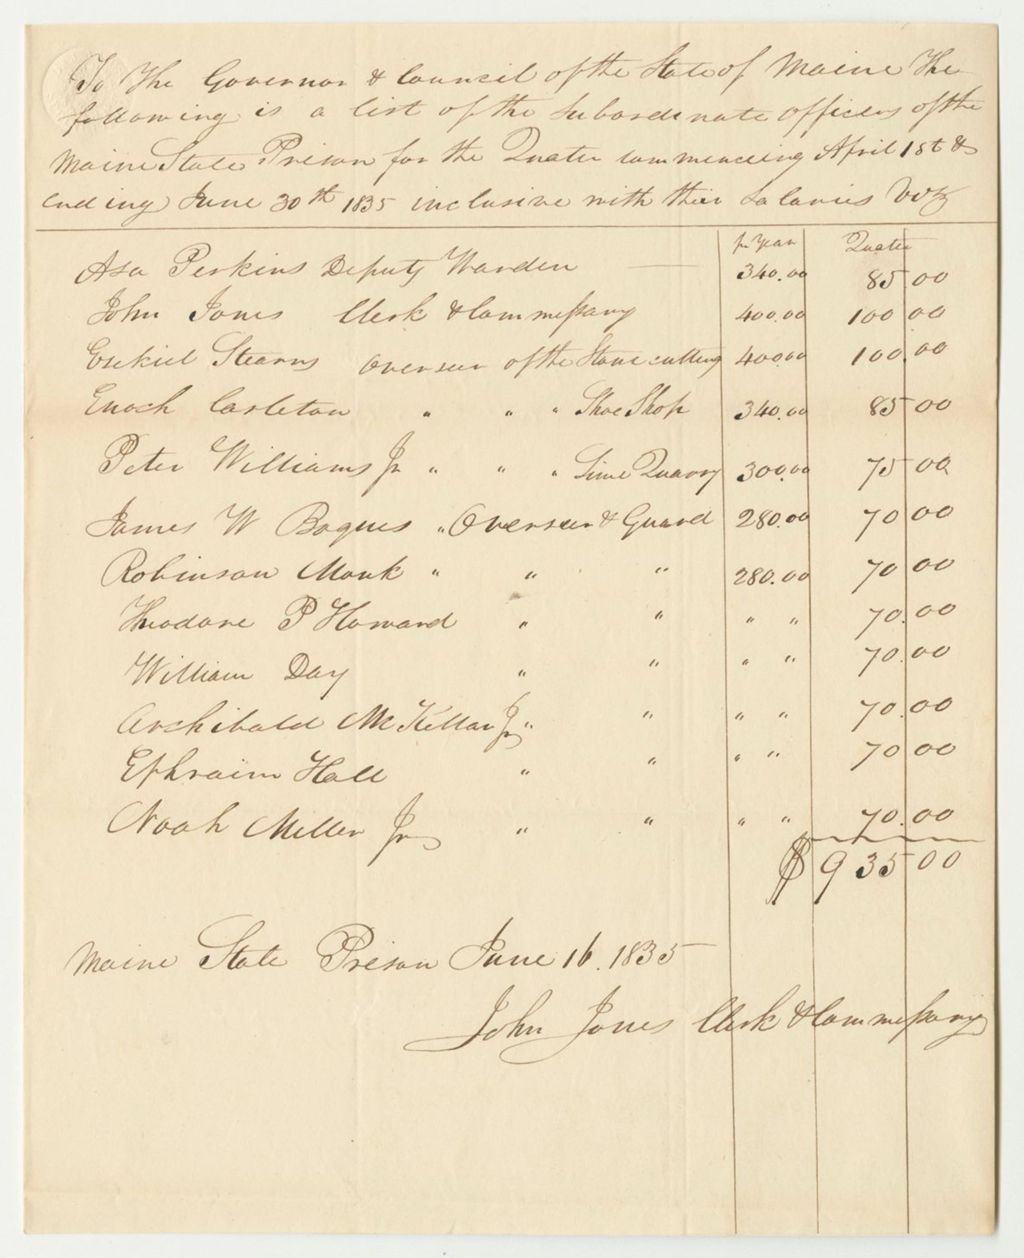 To The Governor & Council of the State of Maine The
following is a list of the Subordinate officers of the
Maine State Prison for the Quater commenceing April 1st &
Ending June 30th 1835 inclusive with their Salaries Viz
pr Year Quater
Asa Perkins Deputy Warden — 340.00 85 00
John Jones Clerk & Commessary 400.00 100 00
Ezekiel Stearns overseer of the Stone cutting 400.00 100.00
Enoch Carleton " " " Shoe Shop 340.00 85 00
Peter Williams Jr " " " Lime Quarry 300.00 75 00
James W Bogues " Overseer & Guard 280.00 70 00
Robinson Monk " " " 280.00 70 00
Theodore P Howard " " " " 70.00
William Day " " " " 70.00
Archibald McKellar Jr " " " " 70.00
Ephraim Hall " " " " 70 00
Noah Miller Jr " " " " 70.00
$ 935 00
Maine State Prison June 16. 1835
John Jones Clerk & Commessary